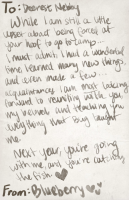 To: Deerese Nebley
While I am still a little
upset about being forced at
your hoof to go to camp...
I must admit, I had a wonderful
time learned many new things,
and even made a few...
acquaintances. I am most looking
forward to reuniting with you
my beloved and teaching you
everything that Bug taught
me.
Next year, you're going
with me, and you're eating
the fish
From: Blueberry